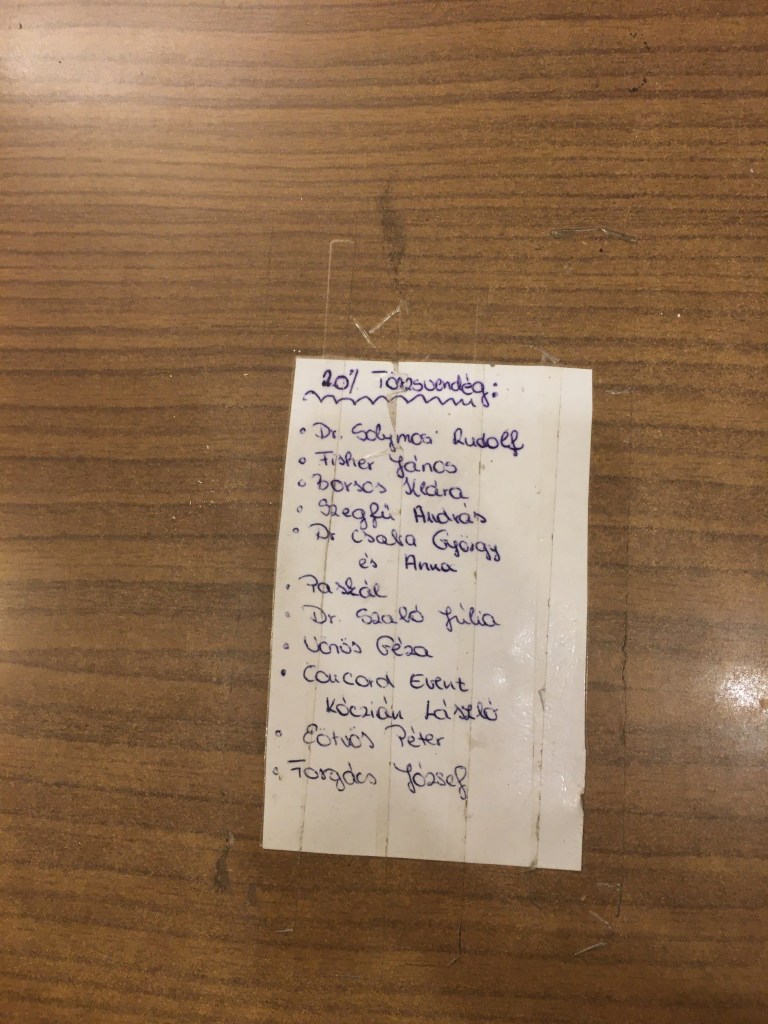 20% Törzsvendég:
• Dr. Solymos Rudolf
• Fisher János
• Borsos Klára
• Szegfű András
• Dr Csaba György
és Anna
• Paszkál
• Dr. Szabó Júlia
• Vörös Géza
• Concord Event
Kóczián László
• Eötvös Péter
• Forgács József